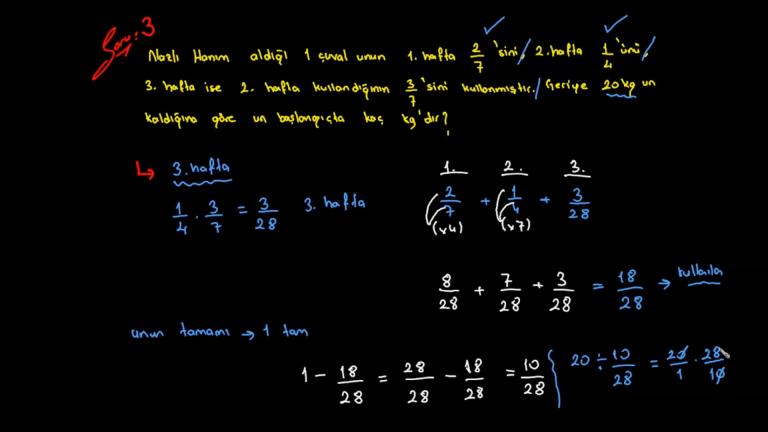 Soru: 3
Nazlı Hanım aldığı 1 çuval unun 1. hafta 2/7 'sini, 2. hafta 1/4 'ünü,
3. hafta ise 2. hafta kullandığının 3/7 'sini kullanmıştır. Geriye 20 kg un
kaldığına göre un başlangıçta kaç kg'dır?
3. hafta
1/4 . 3/7 = 3/28 3. hafta
1. 2. 3.
2/7 + 1/4 + 3/28
(x4) (x7)
8/28 + 7/28 + 3/28 = 18/28 → kullanıla
unun tamamı → 1 tam
1 - 18/28 = 28/28 - 18/28 = 10/28 { 20 ÷ 10/28 = 20/1 . 28/10